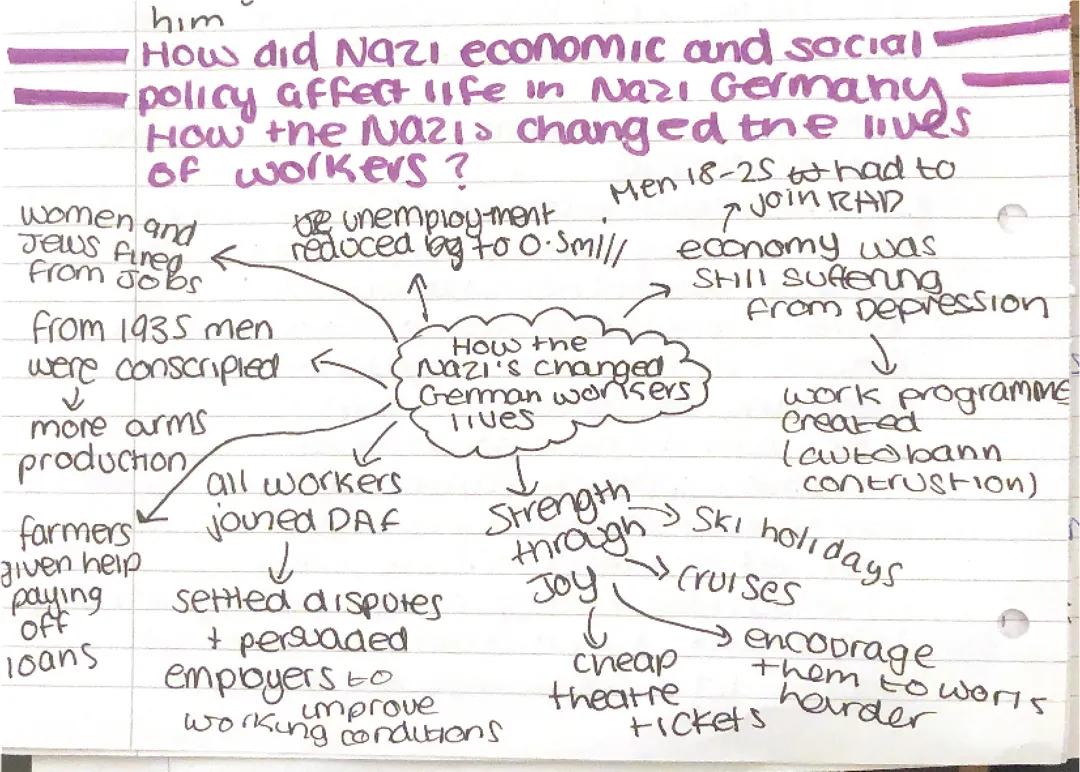 him
How did Nazi economic and social
policy affect life in Nazi Germany
How the Nazis changed the lives
of workers?
Men 18-25 had to
join RAD
economy was
still suffering
from Depression
work programme
created
(autobann
contrustion)
unemployment
reduced to 0.5mill
women and
Jews fired
from jobs
from 1935 men
were conscripted
more arms
production
How the
Nazi's changed
German workers
lives
farmers
given help
paying
off
loans
all workers
joined DAF
settled disputes
+ persuaded
employers to
improve
working conditions
Strength
through
Joy
Ski holidays
cruises
cheap
theatre
tickets
encourage
them to work
harder